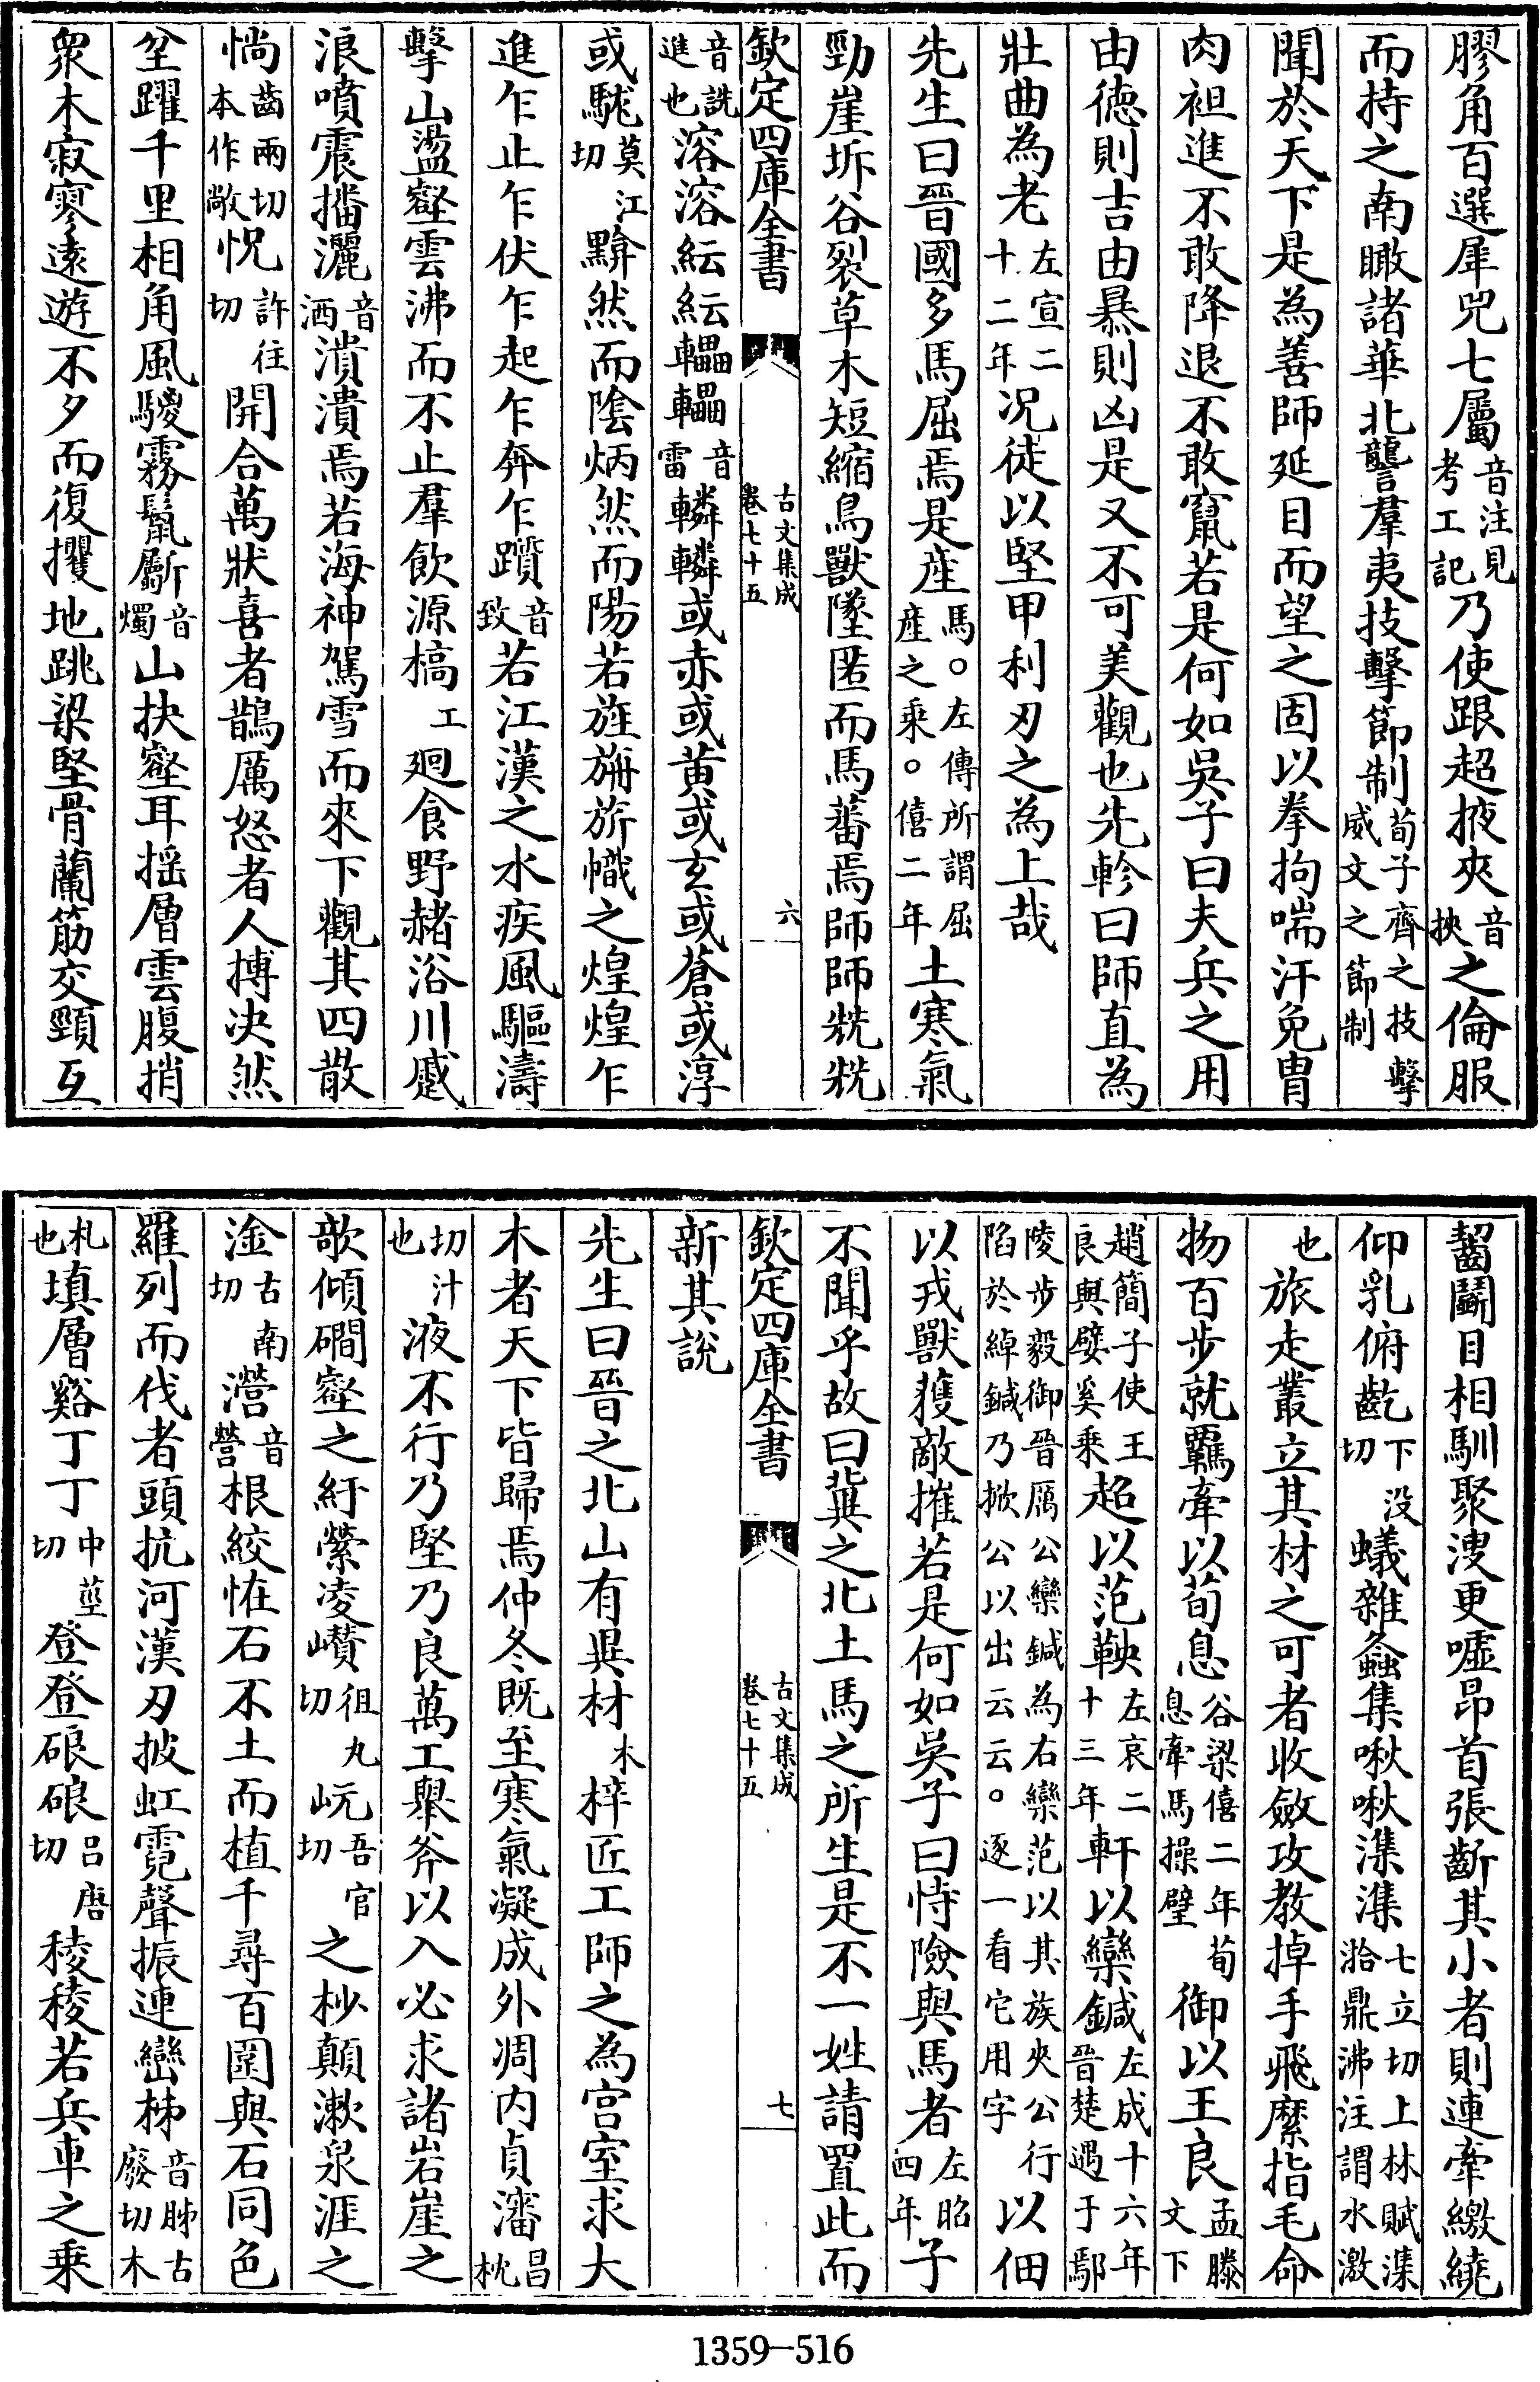 膠角百選犀兕七屬音注見考工記乃使跟超掖夾音挾之倫服
而持之南瞰諸華北讋羣夷技擊節制荀子齊之技擊威文之節制
聞於天下是為善師延目而望之固以拳拘喘汗免胄
肉袒進不敢降退不敢竄若是何如吳子曰夫兵之用
由德則吉由暴則凶是又不可美觀也先軫曰師直為
壯曲為老左宣二十二年况徒以堅甲利刃之為上哉
先生曰晉國多馬屈焉是產馬○左傳所謂屈產之乘○僖二年土寒氣
勁崖坼谷裂草木短縮鳥獸墜匿而馬蕃焉師師兟兟
欽定四庫全書 古文集成卷七十五 六
音詵進也溶溶紜紜轠轠音雷轔轔或赤或黃或玄或蒼或淳
或駹莫江切黭然而陰炳然而陽若旌旃旂幟之煌煌乍
進乍止乍伏乍起乍奔乍躓音致若江漢之水疾風驅濤
擊山盪壑雲沸而不止羣飲源槁工迴食野赭浴川蹙
浪噴震播灑音洒潰潰焉若海神駕雪而來下觀其四散
惝齒兩切本作敞怳許往切開合萬狀喜者鵲厲怒者人搏决然
坌躍千里相角風騣霧鬣斸音燭山抉壑耳搖層雲腹捎
衆木寂寥遠遊不夕而復攫地跳梁堅骨蘭筋交頸互
齧鬭目相馴聚溲更噓昂首張齗其小者則連牽繳繞
仰乳俯齕下没切蟻雜螽集啾啾潗潗七立切上林賦潗潗鼎沸注謂水激
也旅走叢立其材之可者收斂攻教掉手飛縻指毛命
物百步就羈牽以荀息谷梁僖二年荀息牽馬操璧御以王良孟滕文下
趙簡子使王良與嬖奚乘超以范鞅左哀二十三年軒以欒鍼左成十六年晉楚遇于鄢
陵步毅御晉厲公欒鍼為右欒范以其族夾公行陷於綽鍼乃掀公以出云云○逐一看它用字以佃
以戎獸獲敵摧若是何如吳子曰恃險與馬者左昭四年子
不聞乎故曰冀之北土馬之所生是不一姓請置此而
欽定四庫全書 古文集成卷七十五 七
新其說
先生曰晉之北山有異材木梓匠工師之為宫室求大
木者天下皆歸焉仲冬既至寒氣凝成外凋内貞瀋昌枕
切汁也液不行乃堅乃良萬工舉斧以入必求諸岩崖之
欹傾磵壑之紆縈凌巑徂丸切岏吾官切之杪顛漱泉涯之
淦古南切瀯音營根絞恠石不土而植千尋百圍與石同色
羅列而伐者頭抗河漢刃披虹霓聲振連巒柿音肺古廢切木
札也填層谿丁丁中莖切登登硠硠吕唐切稜稜若兵車之乘
1359-516